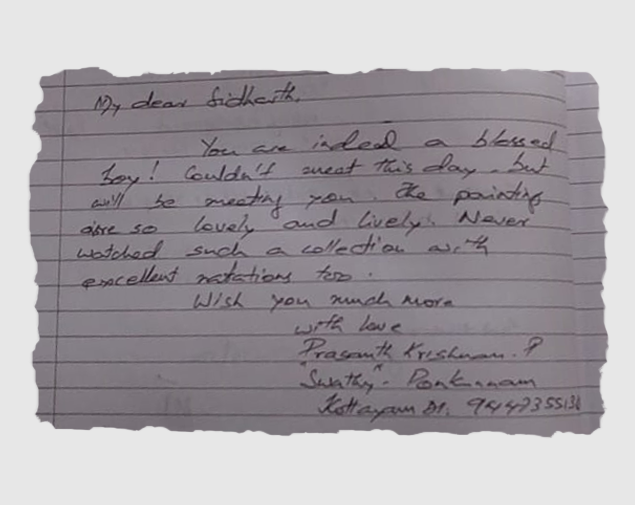 My dear Sidharth,
You are indeed a blessed
boy! Couldn't meet this day. but
will be meeting you. The paintings
are so lovely and lively. Never
watched such a collection with
excellent notations too.
Wish you much more
with love
Prasanth Krishnan. P
"Swathy" - Ponkunnam
Kottayam Dt.